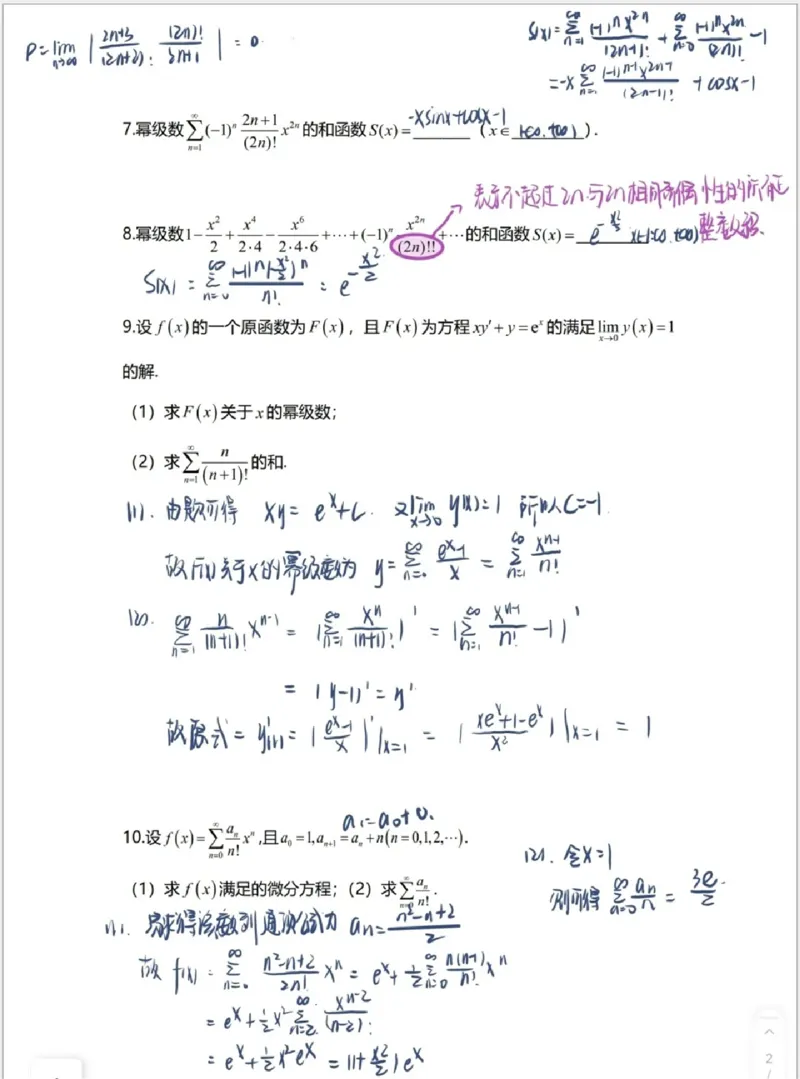 ρ=lim_{n→∞} | (2n+3)/(2n+2)! · (2n)!/(2n+1) | = 0.
S(x)=∑_{n=1}^{∞} (-1)^n x^{2n}/(2n-1)! + ∑_{n=0}^{∞} (-1)^n x^{2n}/(2n)! -1
=-x∑_{n=1}^{∞} (-1)^{n-1} x^{2n-1}/(2n-1)! + cosx-1
7.幂级数∑_{n=1}^{∞}(-1)^n (2n+1)/(2n)! x^{2n}的和函数S(x)= -xsinx+cosx-1 (x∈ (-∞,+∞) ).
表示不超过2n与2n相同奇偶性的所有
整数之积
8.幂级数1-x²/2+x⁴/(2·4)-x⁶/(2·4·6)+⋯+(-1)^n x^{2n}/(2n)!!+⋯的和函数S(x)= e^{-x²/2} x∈(-∞,+∞)
S(x)=∑_{n=0}^{∞} (-1)^n(x²/2)^n/n! = e^{-x²/2}
9.设f(x)的一个原函数为F(x)，且F(x)为方程xy′+y=e^x的满足lim_{x→0}y(x)=1
的解.
（1）求F(x)关于x的幂级数；
（2）求∑_{n=1}^{∞} n/(n+1)!的和.
(1). 由题可得 xy=e^x+C. 又lim_{x→0} y(x)=1 所以C=-1.
故F(x)关于x的幂级数为 y=∑_{n=0}^{∞} (e^x-1)/x = ∑_{n=1}^{∞} x^{n-1}/n!
(2). ∑_{n=1}^{∞} n/(n+1)! x^{n-1} = (∑_{n=1}^{∞} x^n/(n+1)!)′ = (∑_{n=1}^{∞} x^{n-1}/n! -1)′
= (y-1)′=y′
故原式= y′(1)= ((e^x-1)/x)′|_{x=1} = ((xe^x+1-e^x)/x²)|_{x=1} = 1
a₁=a₀+0.
10.设f(x)=∑_{n=0}^{∞} a_n/n! x^n,且a₀=1,a_{n+1}=a_n+n(n=0,1,2,⋯).
（1）求f(x)满足的微分方程;（2）求∑_{n=0}^{∞} a_n/n!.
(2). 令x=1
则可得 ∑_{n=0}^{∞} a_n/n! = 3e/2.
(1). 易求得该数列通项公式为 a_n=(n²-n+2)/2
故 f(x)=∑_{n=0}^{∞} (n²-n+2)/(2n!) x^n = e^x+½∑_{n=0}^{∞} n(n-1)/n! x^n
= e^x+½x²∑_{n=2}^{∞} x^{n-2}/(n-2)!
= e^x+½x²e^x =(1+x²/2)e^x
2